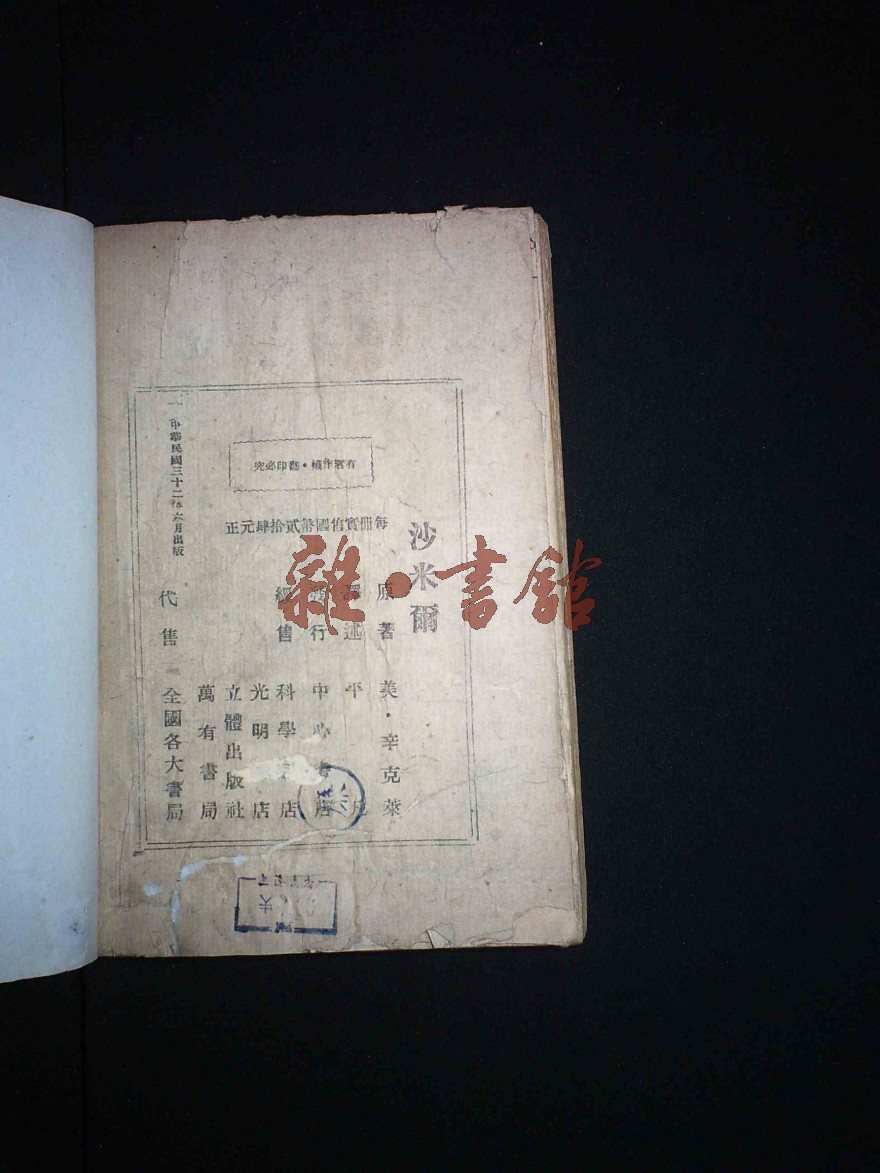 沙米爾
原著 美·辛克萊
譯述 平
發行 中心書店
經售 科學書店
光明書店
立體出版社
萬有書局
代售 全國各大書局
每册實價國幣貳拾肆元正
有著作權·翻印必究
中華民國三十二年六月出版
雜·書館